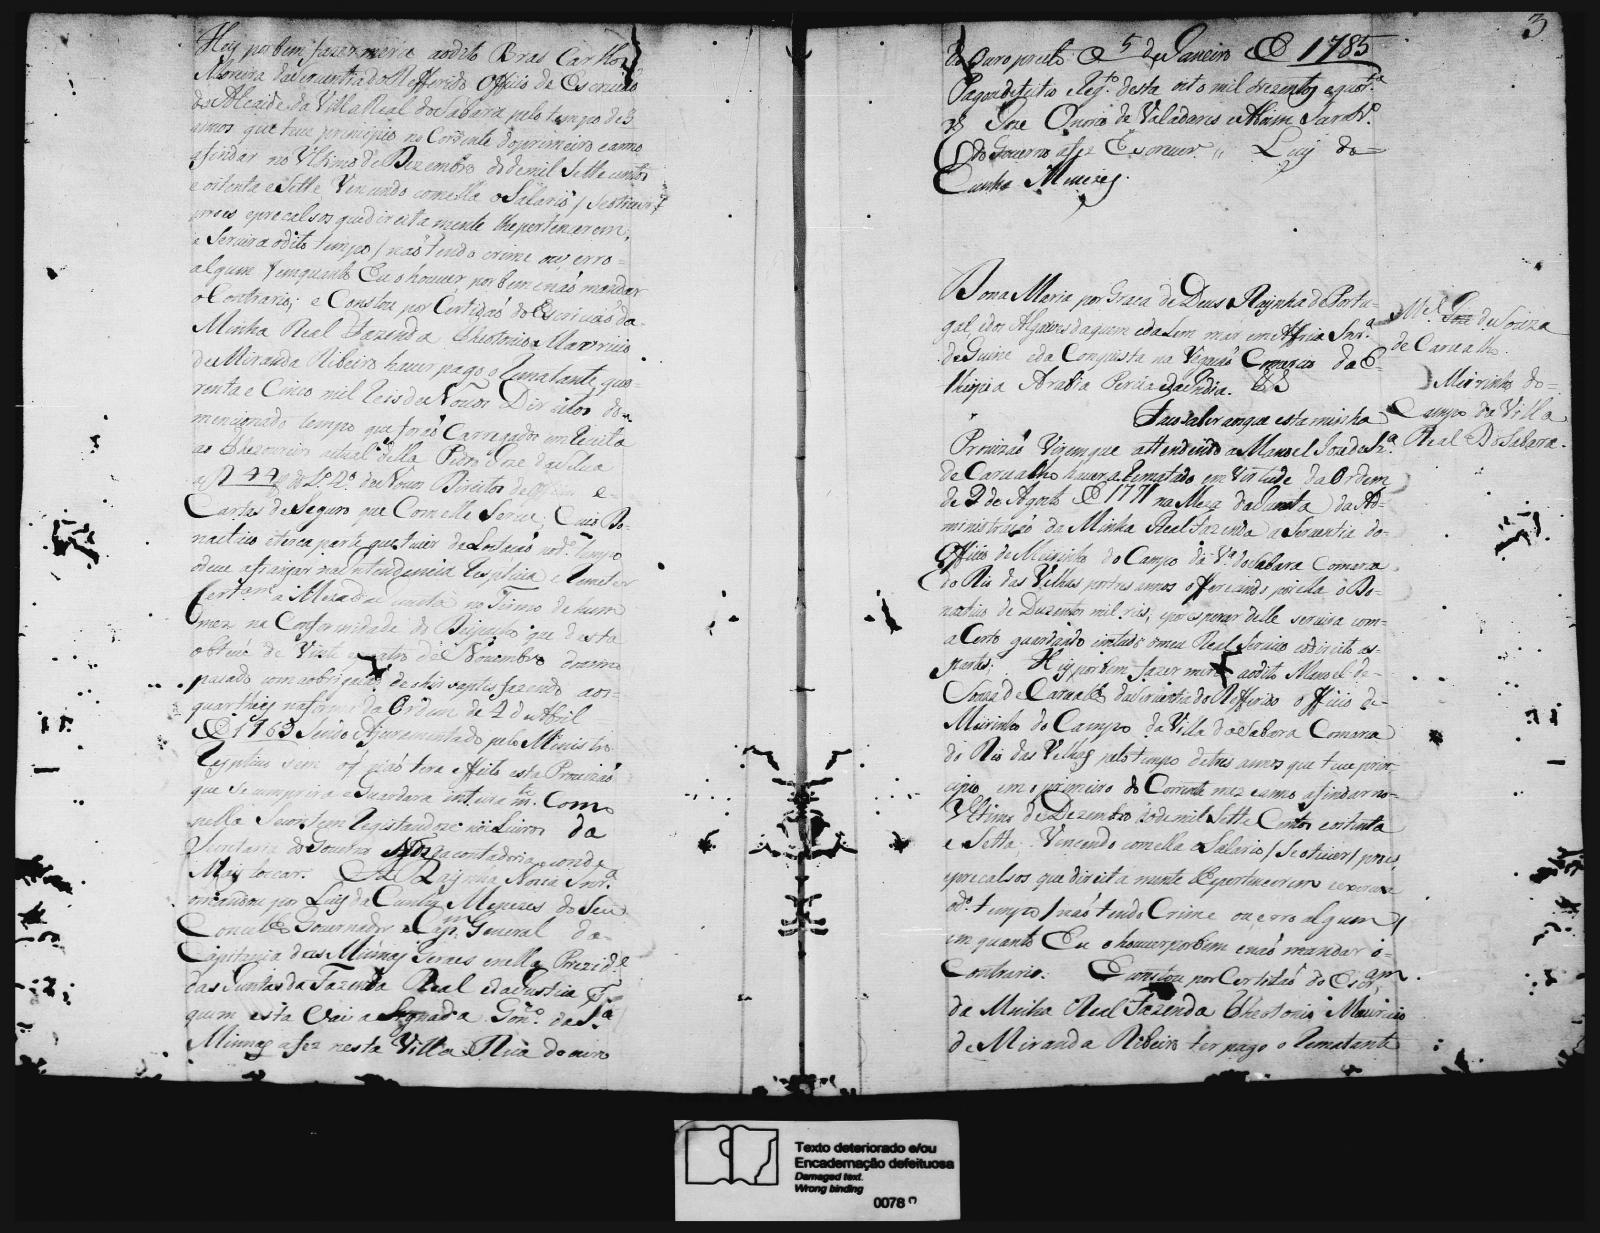 Hey por bem fazer merce ao dito Bras Carlhos
Moreira da Serventia do Refferido Officio de Escrivão
do Alcaide da Villa Real do Sabara pelo tempo de 3
annos que teve principio no Corrente do primeiro e anno
afindar no Ultimo de Dezembro do de mil Sette centos
e oitenta e Sette Vencendo com ella o Salario / Se o tiver /
proes e precalsos que direita mente lhe pertencerem,
e Servira o dito tempo / naõ tendo crime ou erro =
algum / em quanto Eu o houver por bem e naõ mandar
o Contrario; e Constou por Certidaõ do Escrivaõ da
Minha Real Fazenda Theotonio Mauricio
de Miranda Ribeiro haver pago o Rematante qua-
renta e Cinco mil Reis de Novos Direitos do
mencionado tempo que foraõ Carregados em Receita
ao Thezoureiro actual della Pedro Joze da Silva
a f 44 do L.º 2.º de Novos Direitos de Officios e =
Cartas de Seguro que Com elle Serve; Cujo Do-
nativo e terca parte que tiver de Lotacaõ no d.º tempo
o deve afiancar na Intendencia Respectiva e Remeter
Cert.am a Meza da Junta no Termo de hum
mez na Conformidade do Despacho que desta
obteve de Vinte e quatro de Novembro do anno
pasado com a obrigacaõ de a hir satisfazendo aos =
quarthéis na forma da Ordem de 2 de Abril
D 1763 Sendo Ajuramentado pelo Ministro
Respectivo sem o q naõ tera effeito esta Provizaõ
que Se cumprira e Guardara inteiram.te Como
nella Se contem Registandose nos Livros da
Secretaria do Governo Nesta contadoria e onde
Mais tocar. A Raynha Nossa Snr.ª
o mandou por Luiz da Cunha Menezes do Seu
Concelho Governador e Cap.m General da =
Capitania das Minas Geraes e nella Prezid.e
das Juntas da Fazenda Real e da Justica
quem esta Vai a Signada Gon.º da S.ª
Minnas a fez nesta Villa Rica do ouro
3
do Ouro preto a 5 de Janeiro D 1785
Pagou de feitio e Reg.to desta oito mil e trezentos e quor.ta
rs Joze Onorio de Valadares e Aboim Secretr.º
do Governo a fez Escrever ,, Luiz da =
Cunha Menezes.
Dona Maria por Graca de Deus Raynha de Portu-
gal, e dos Algarves daquem e dalem mar em Affrica Snr.ª
de Guine e da Conquista na Vegaçaõ Comercio da E-
thiopia Arabia Percia e da India. &&
M.el Joze de Souza
de Carvalho.
Meirinho do =
Campo da Villa
Real Do Sabara.
Faco Saber aos que esta minha
Provizaõ Virem que attendendo a Manoel Joze de Sz.ª
de Carvalho haver a Rematado em Virtude da Ordem
de 2 de Agosto D 1771 na Meza da Junta da Ad-
ministraçaõ da Minha Real Fazenda a Serventia do =
Officio de Meirinho do Campo da V.ª do Sabara Comarca
do Rio das Velhas por tres annos offerecendo por ella o Do-
nativo de Duzentos mil reis; e por esperar delle servira com =
a Certo guardando em tudo o meu Real Servico e o direito as =
partes; Hey por bem fazer merce ao dito Manoel de =
Souza de Carvalho da Serventia do Refferido officio de =
Meirinho do Campo da Villa do Sabara Comarca
do Rio das Velhas pelo tempo de tres annos que teve prin-
cipio em o primeiro do Corrente mez e anno afindar no =
Ultimo de Dezembro do de mil Sette Centos e oitenta
e Sette. Vencendo com ella o Salario / Se o tiver / proes
e precalsos que direita mente lhe pertencerem e exercera
o d.º tempo / naõ tendo Crime ou erro algum /
em quanto Eu o houver por bem e naõ mandar o =
Contrario. E constou por Certidaõ do Escr.am
da Minha Real Fazenda Theotonio Mauricio
de Miranda Ribeiro ter pago o Rematante
Texto deteriorado e/ou
Encadernação defeituosa
Damaged text.
Wrong binding
0078